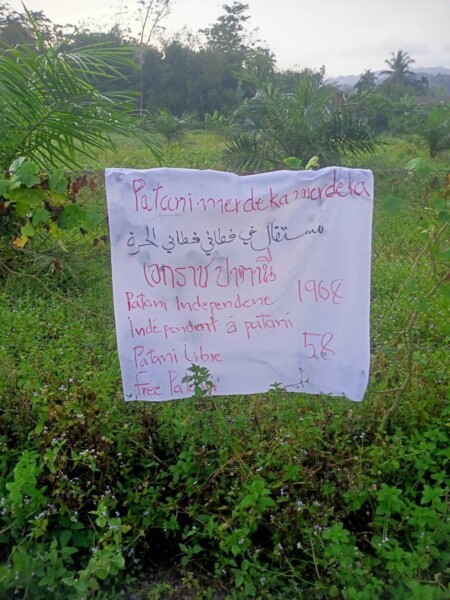 Patani merdeka merdeka
مستقال في فطاني فطاني الحرة
เอกราช ปาตานี
Patani Independene 1968
Indépendent à patani
Patani Libre 58
free Pa